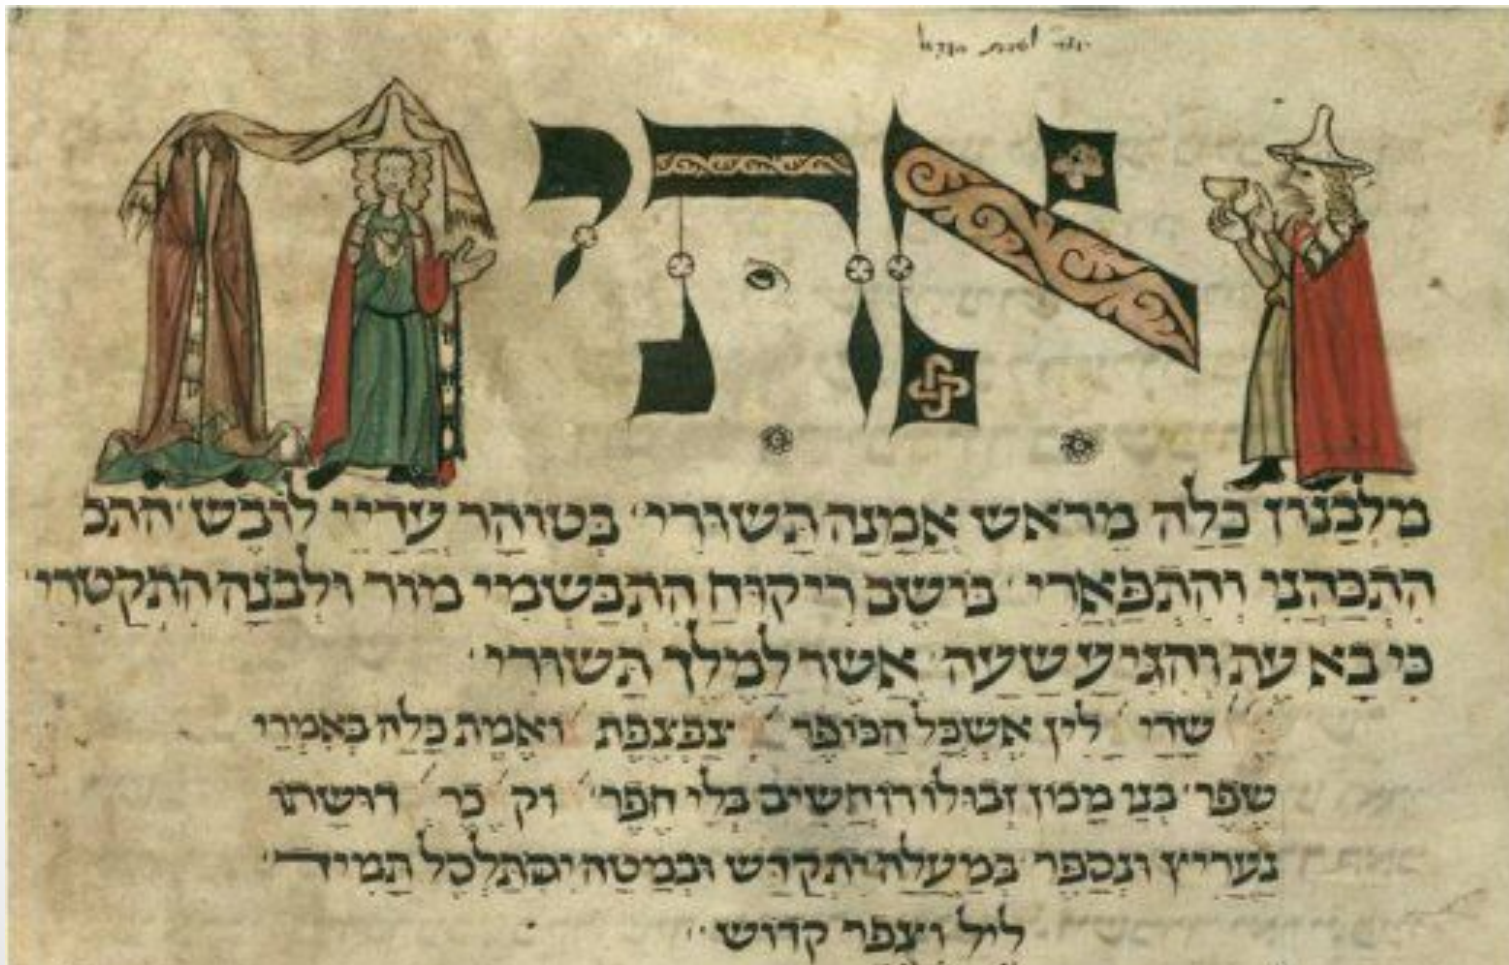 יוצר לשבת הגדול
אתי
מלבנון כלה מראש אמנה תשורי בטוהר עדיי לובש התכ
התכהני והתפארי ריקוח התבשמי מור ולבנה התקטרי
כי בא עת והגיע שעה אשר למלך תשורי
שדי לין אשכל הכופר צפצפת ואמת כלה באמרי
שפר ממון כלי חפר
נעריץ ונספר במעלה יתקדש ובמטה תמיד
ליל וצפר קדוש